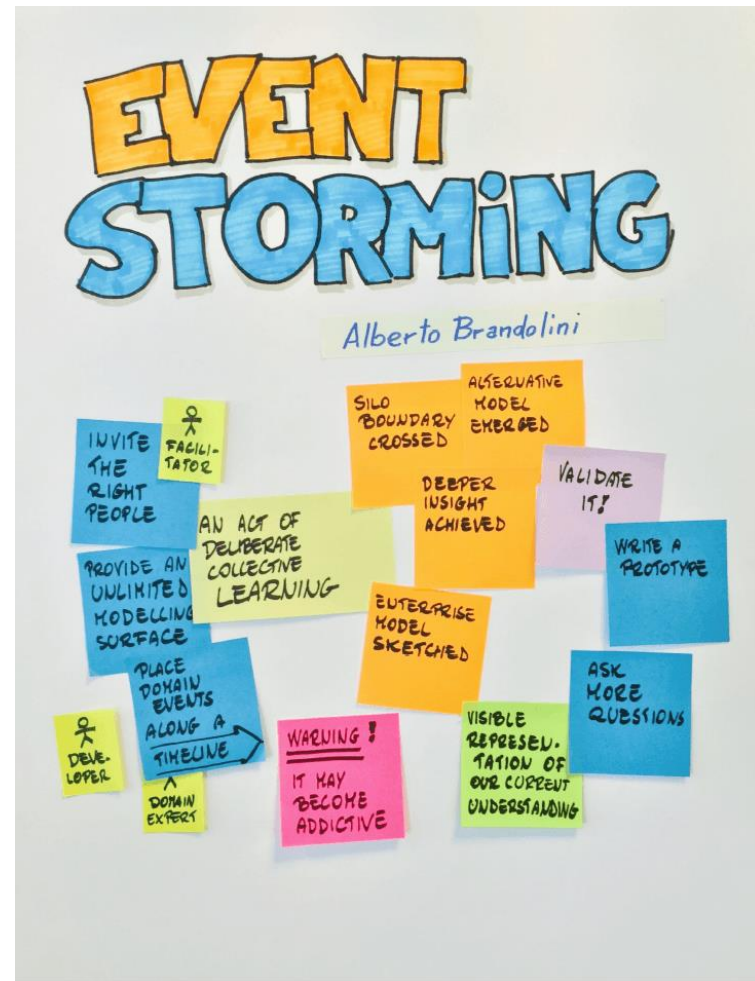 EVENT
STORMiNG
Alberto Brandolini
INVITE
THE
RIGHT
PEOPLE
FACILI-
TATOR
PROVIDE AN
UNLIMITED
MODELLING
SURFACE
AN ACT OF
DELIBERATE
COLLECTIVE
LEARNING
PLACE
DOMAIN
EVENTS
ALONG A
TIMELINE
DEVE-
LOPER
DOMAIN
EXPERT
SILO
BOUNDARY
CROSSED
ALTERNATIVE
MODEL
EMERGED
DEEPER
INSIGHT
ACHIEVED
VALIDATE
IT!
WRITE A
PROTOTYPE
ENTERPRISE
MODEL
SKETCHED
ASK
MORE
QUESTIONS
WARNING !
IT MAY
BECOME
ADDICTIVE
VISIBLE
REPRESEN-
TATION OF
OUR CURRENT
UNDERSTANDING